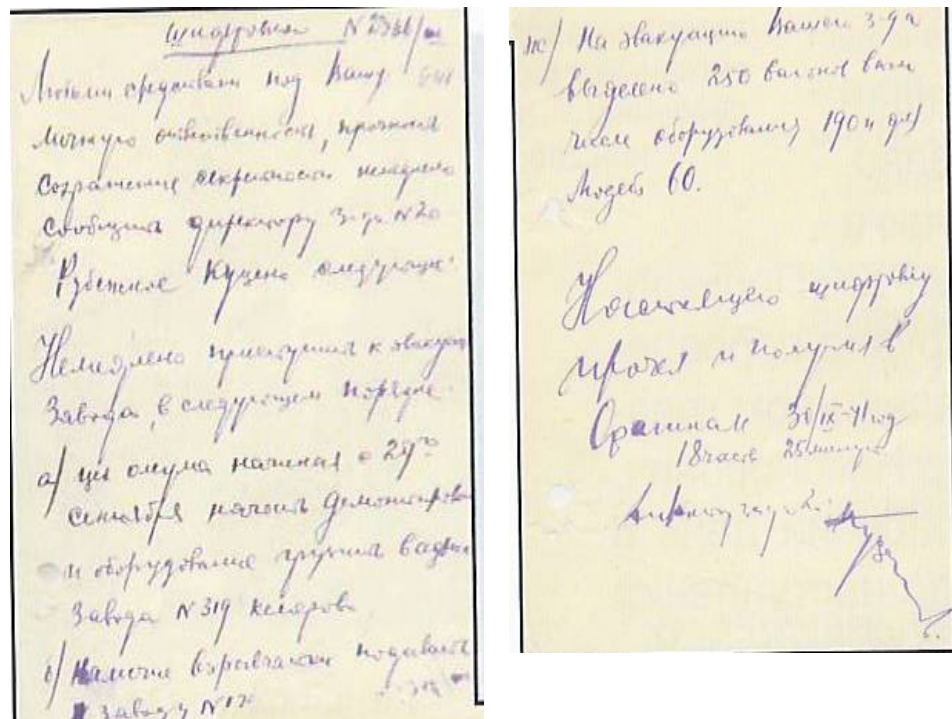 Шифровка N
Любыми средствами под Вашу
личную ответственность, прочная
сохранение секретности немедленно
сообщить директору З-да N20
Рубежное Куценко следующее:
Немедлено приступить к эвакуации
Завода, в следующем порядке.
а) цех олеума начиная с 29го
сентября начать демонтировать
и оборудование грузить в адрес
Завода N 319 Кемерово
б) взрывчатки подавать
Заводу N
ж) На эвакуацию Вашего з-да
выделено 250 вагонов в том
числе оборудования 190 и для
людей 60.
Настоящую шифровку
прочел и получил в
Оригинале 30/IX-41 год
18 часов 25 минут